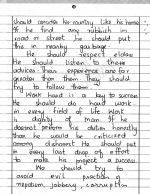 should consider his country like his home
If he find any rubbish in
road or street he should put
this in nearby garbage.
He should respect elders
He should listen to there
advices their experience are far
greater than them. They should
try to follow them.
Work hard is a key to success
He should do hard work
in every field of life. Work
is dignity of man. If he
doesnot perform his duties honestly
than he would be criticized
among dishonest. He should put
in every last drop of effort
to make his project a success
We should try to
avoid evil practices
nepotism, jobbery, corruption